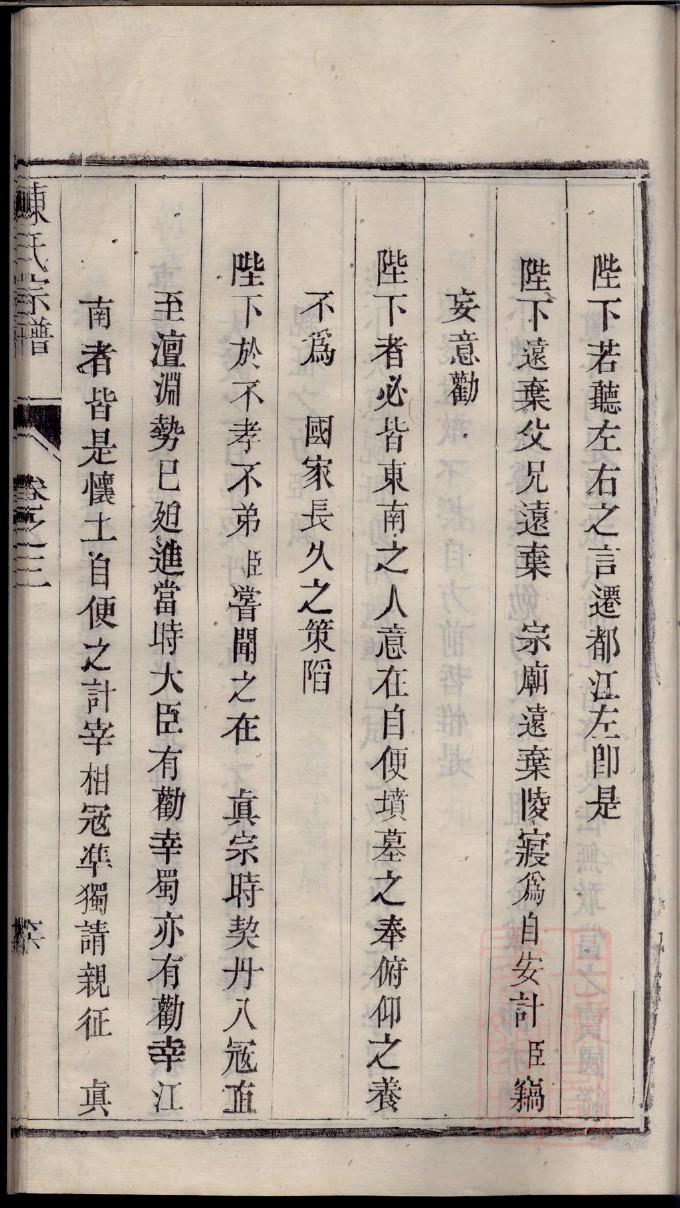 陛下若聽左右之言遷都江左卽是
陛下遠棄父兄遠棄 宗廟遠棄陵寢爲自安計臣竊
妄意勸
陛下者必皆東南之人意在自便墳墓之奉俯仰之養
不爲 國家長久之策䧟
陛下於不孝不弟臣嘗聞之在 眞宗時契丹入㓂直
至澶淵勢已廹進當時大臣有勸幸蜀亦有勸幸江
南者皆是懷土自便之計宰相㓂凖獨請親征 眞
陳氏宗譜 卷之三 六